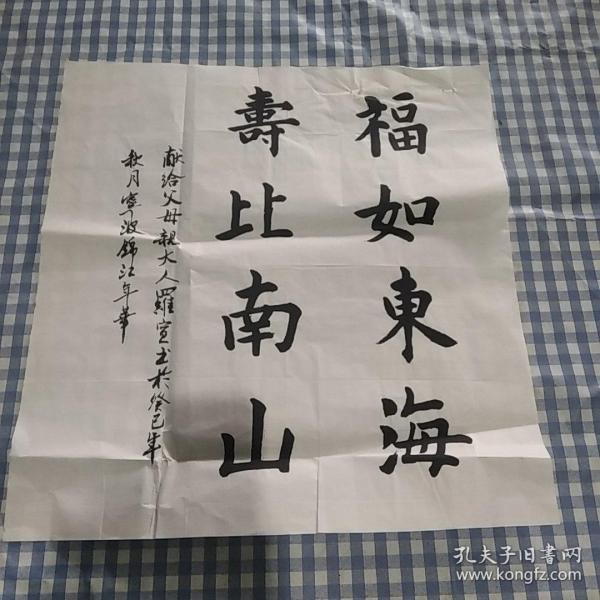 福如東海
壽比南山
献给父母親大人羅宣书於癸巳年
秋月寧波錦江年華
孔夫子旧書网
www.kongfz.com